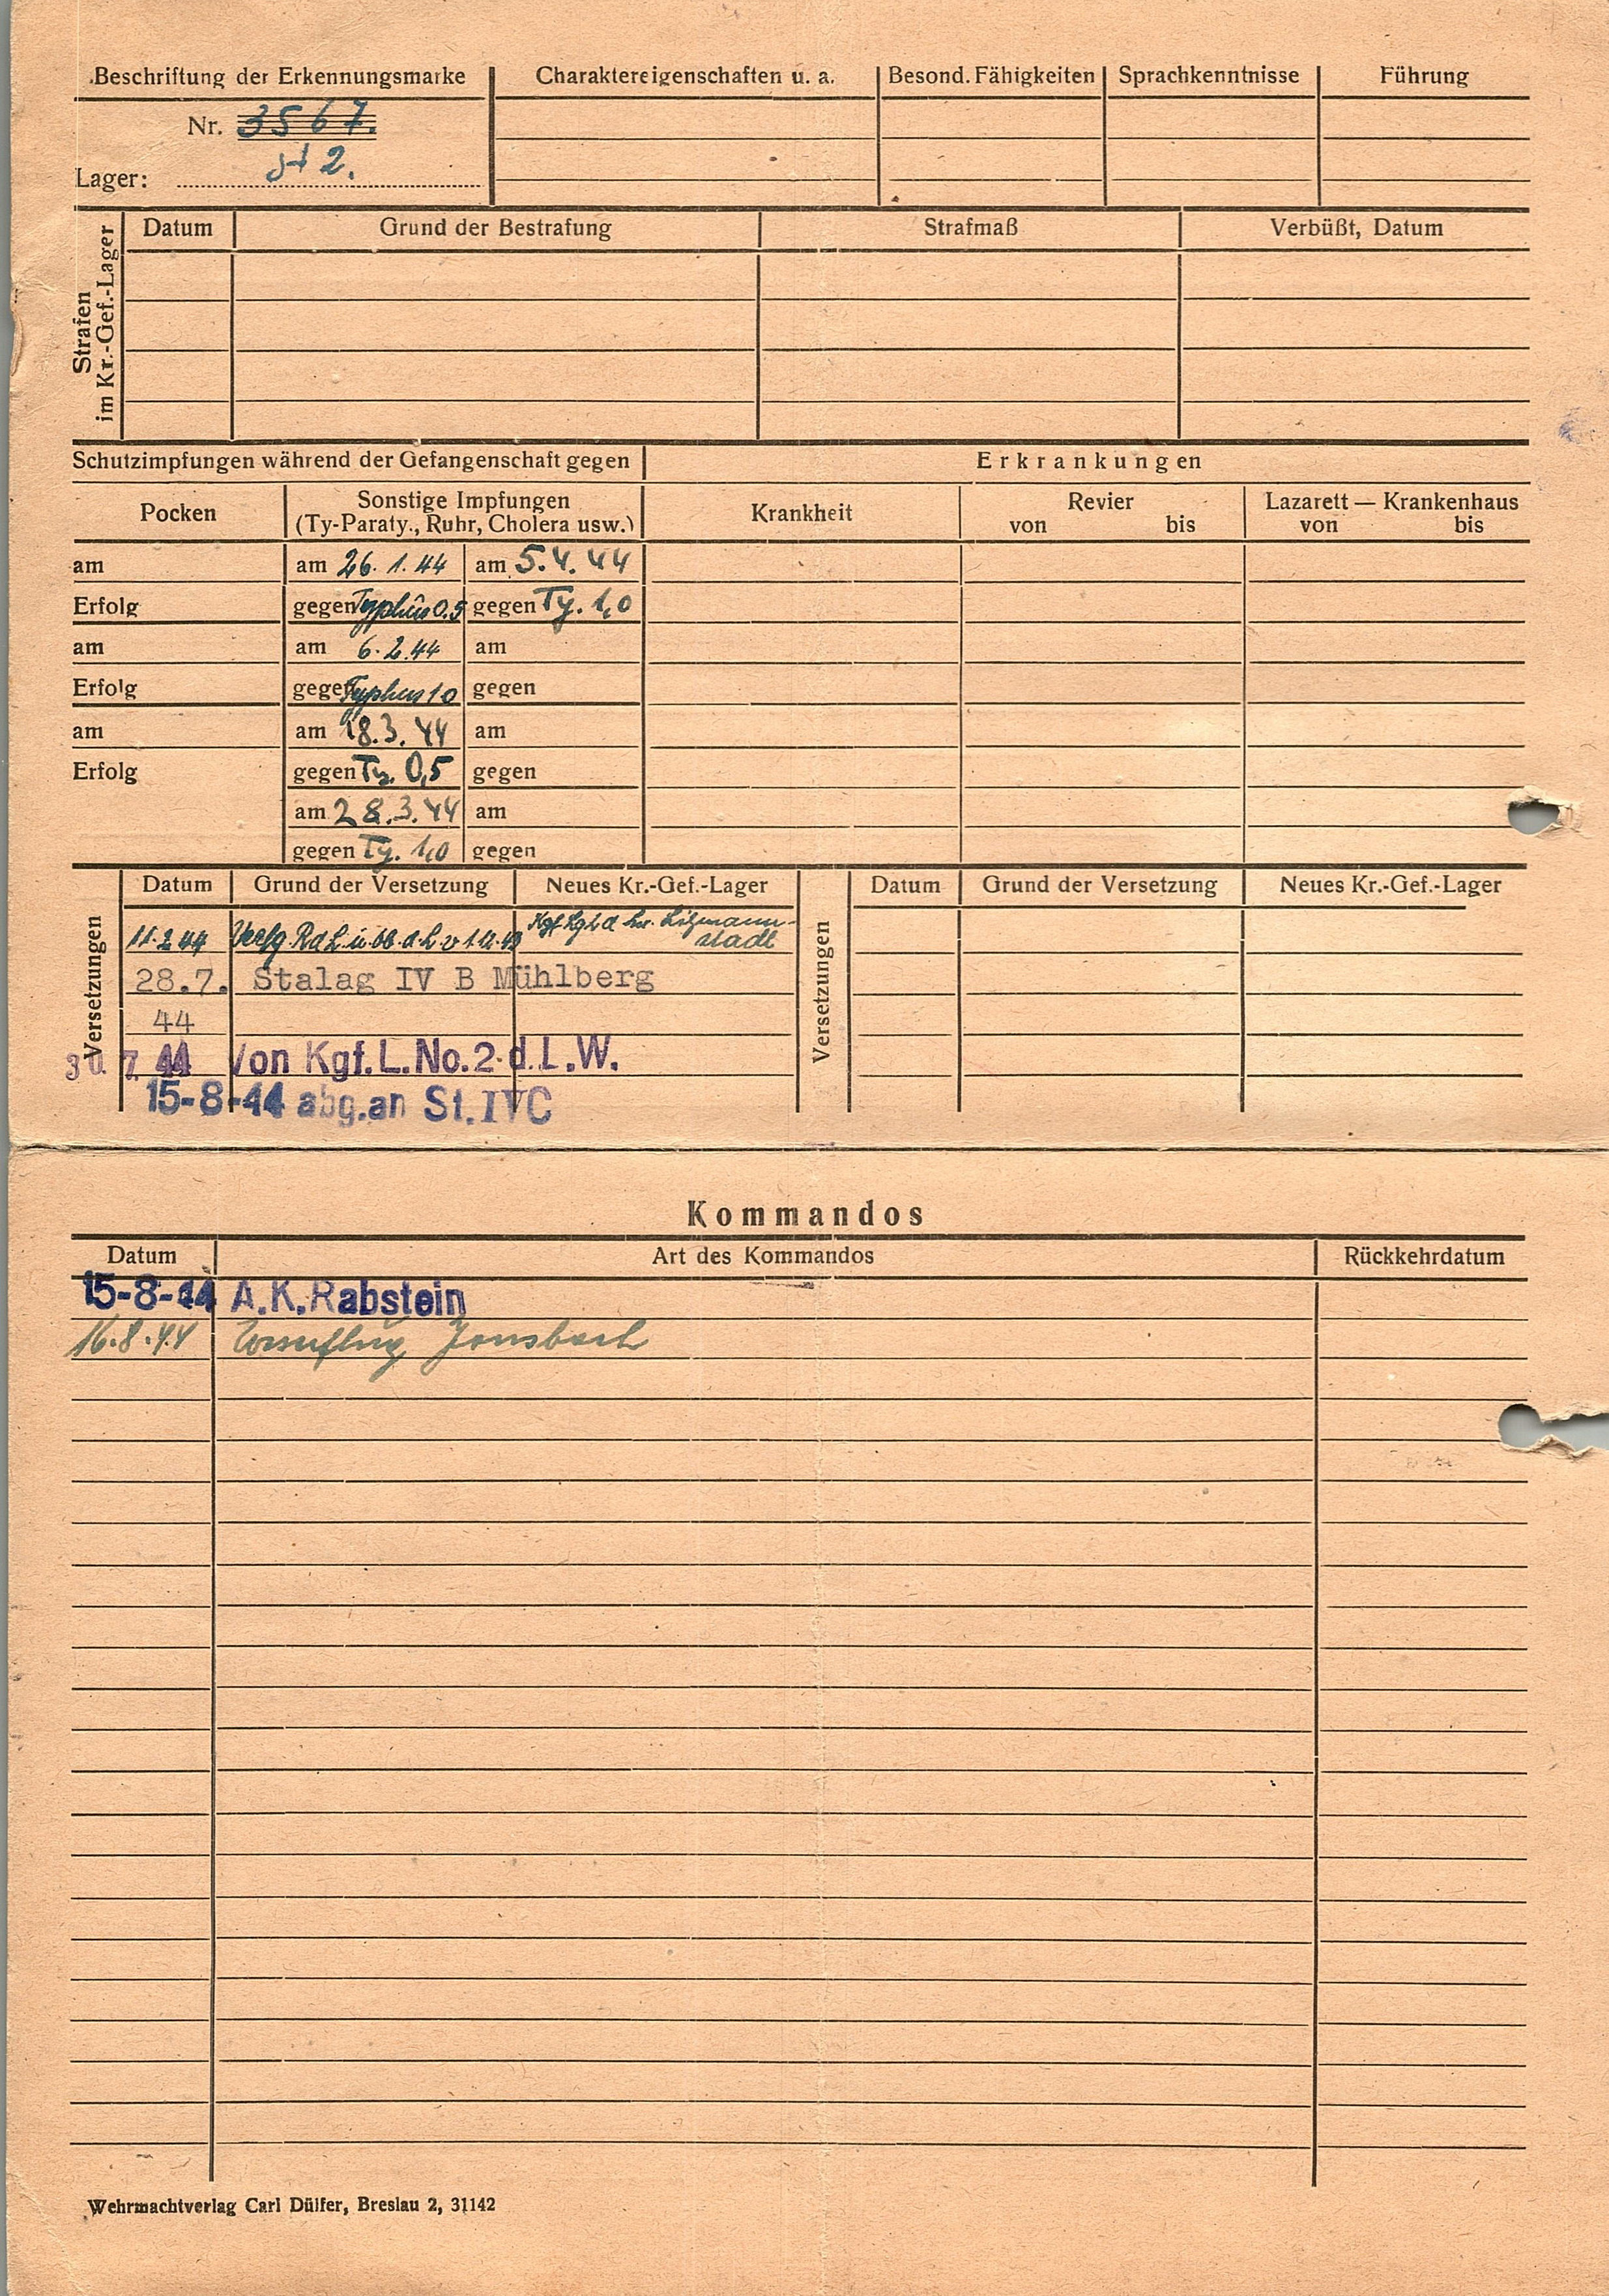 Beschriftung der Erkennungsmarke | Charaktereigenschaften u. a. | Besond. Fähigkeiten | Sprachkenntnisse | Führung
Nr. 3567.
Lager: St 2.
Strafen im Kr.-Gef.-Lager | Datum | Grund der Bestrafung | Strafmaß | Verbüßt, Datum
Schutzimpfungen während der Gefangenschaft gegen | Erkrankungen
Pocken | Sonstige Impfungen (Ty-Paraty., Ruhr, Cholera usw.) | Krankheit | Revier von bis | Lazarett — Krankenhaus von bis
am | am 26.1.44 | am 5.4.44
Erfolg | gegen Typhus 0.5 | gegen Ty. 1,0
am | am 6.2.44 | am
Erfolg | gegen Typhus 1 0 | gegen
am | am 18.3.44 | am
Erfolg | gegen Ty. 0,5 | gegen
am 28.3.44 | am
gegen Ty. 1,0 | gegen
Versetzungen | Datum | Grund der Versetzung | Neues Kr.-Gef.-Lager | Versetzungen | Datum | Grund der Versetzung | Neues Kr.-Gef.-Lager
11.2.44 | Verfg. R d L u. Ob. d. L v 1.12.43 | Kgf. Lg 2 d. Lw. Litzmann-
stadt
28.7. Stalag IV B Mühlberg
44
30.7.44 Von Kgf.L.No.2 d.L.W.
15-8-44 abg.an St.IVC
Kommandos
Datum | Art des Kommandos | Rückkehrdatum
15-8-44 A.K.Rabstein
16.8.44 Jonsbach
Wehrmachtverlag Carl Dülfer, Breslau 2, 31142